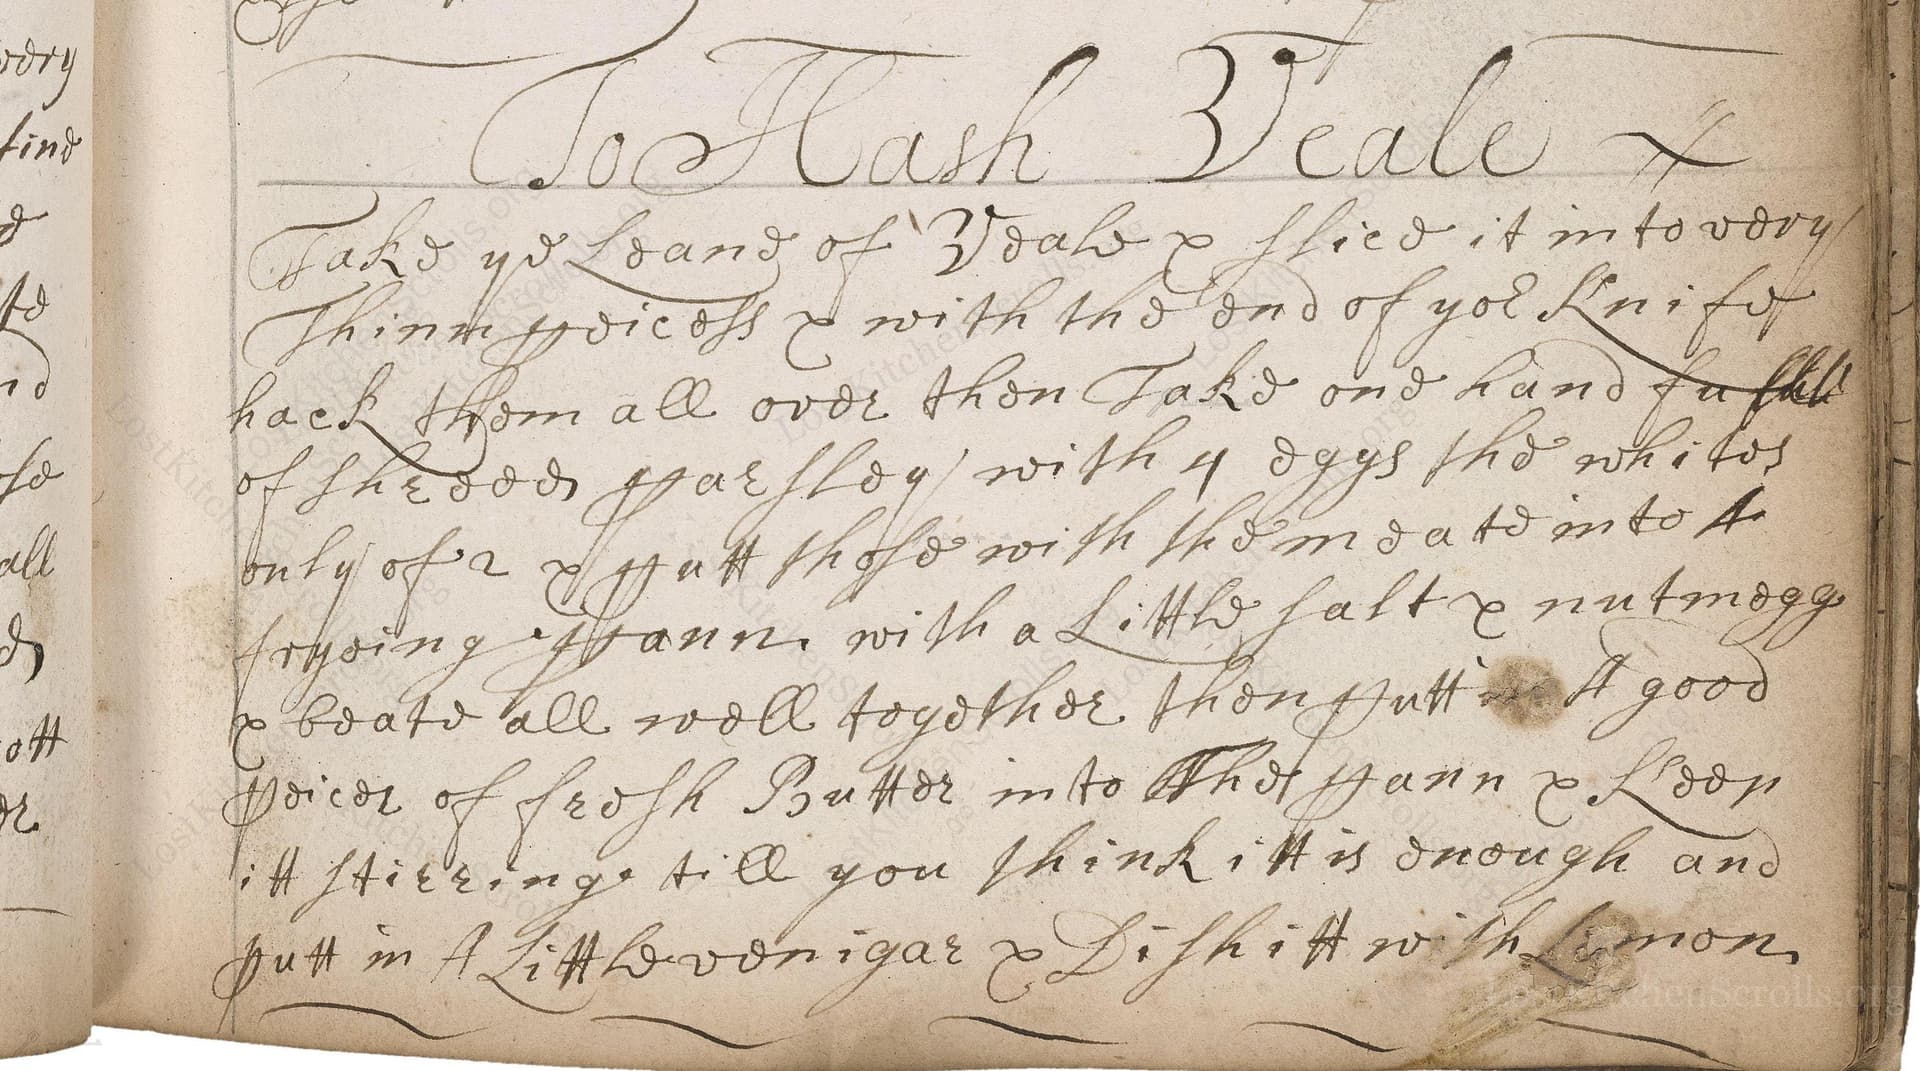 very
fine
all
To Hash Veale
Take ye Leane of Veale & slice it into very
Thinn peicess & with the end of yor Knife
hack them all over then Take one hand full
of shreded parsley with 4 eggs the whites
only of 2 & putt those with the meate into A
fryeing pann with a Little salt & nutmegg
& beate all well together then putt A good
peicer of fresh Butter into The pann & Keep
itt stirring till you think itt is enough and
putt in A Little venigar & Dish itt with Limon
LostKitchenScrolls.org